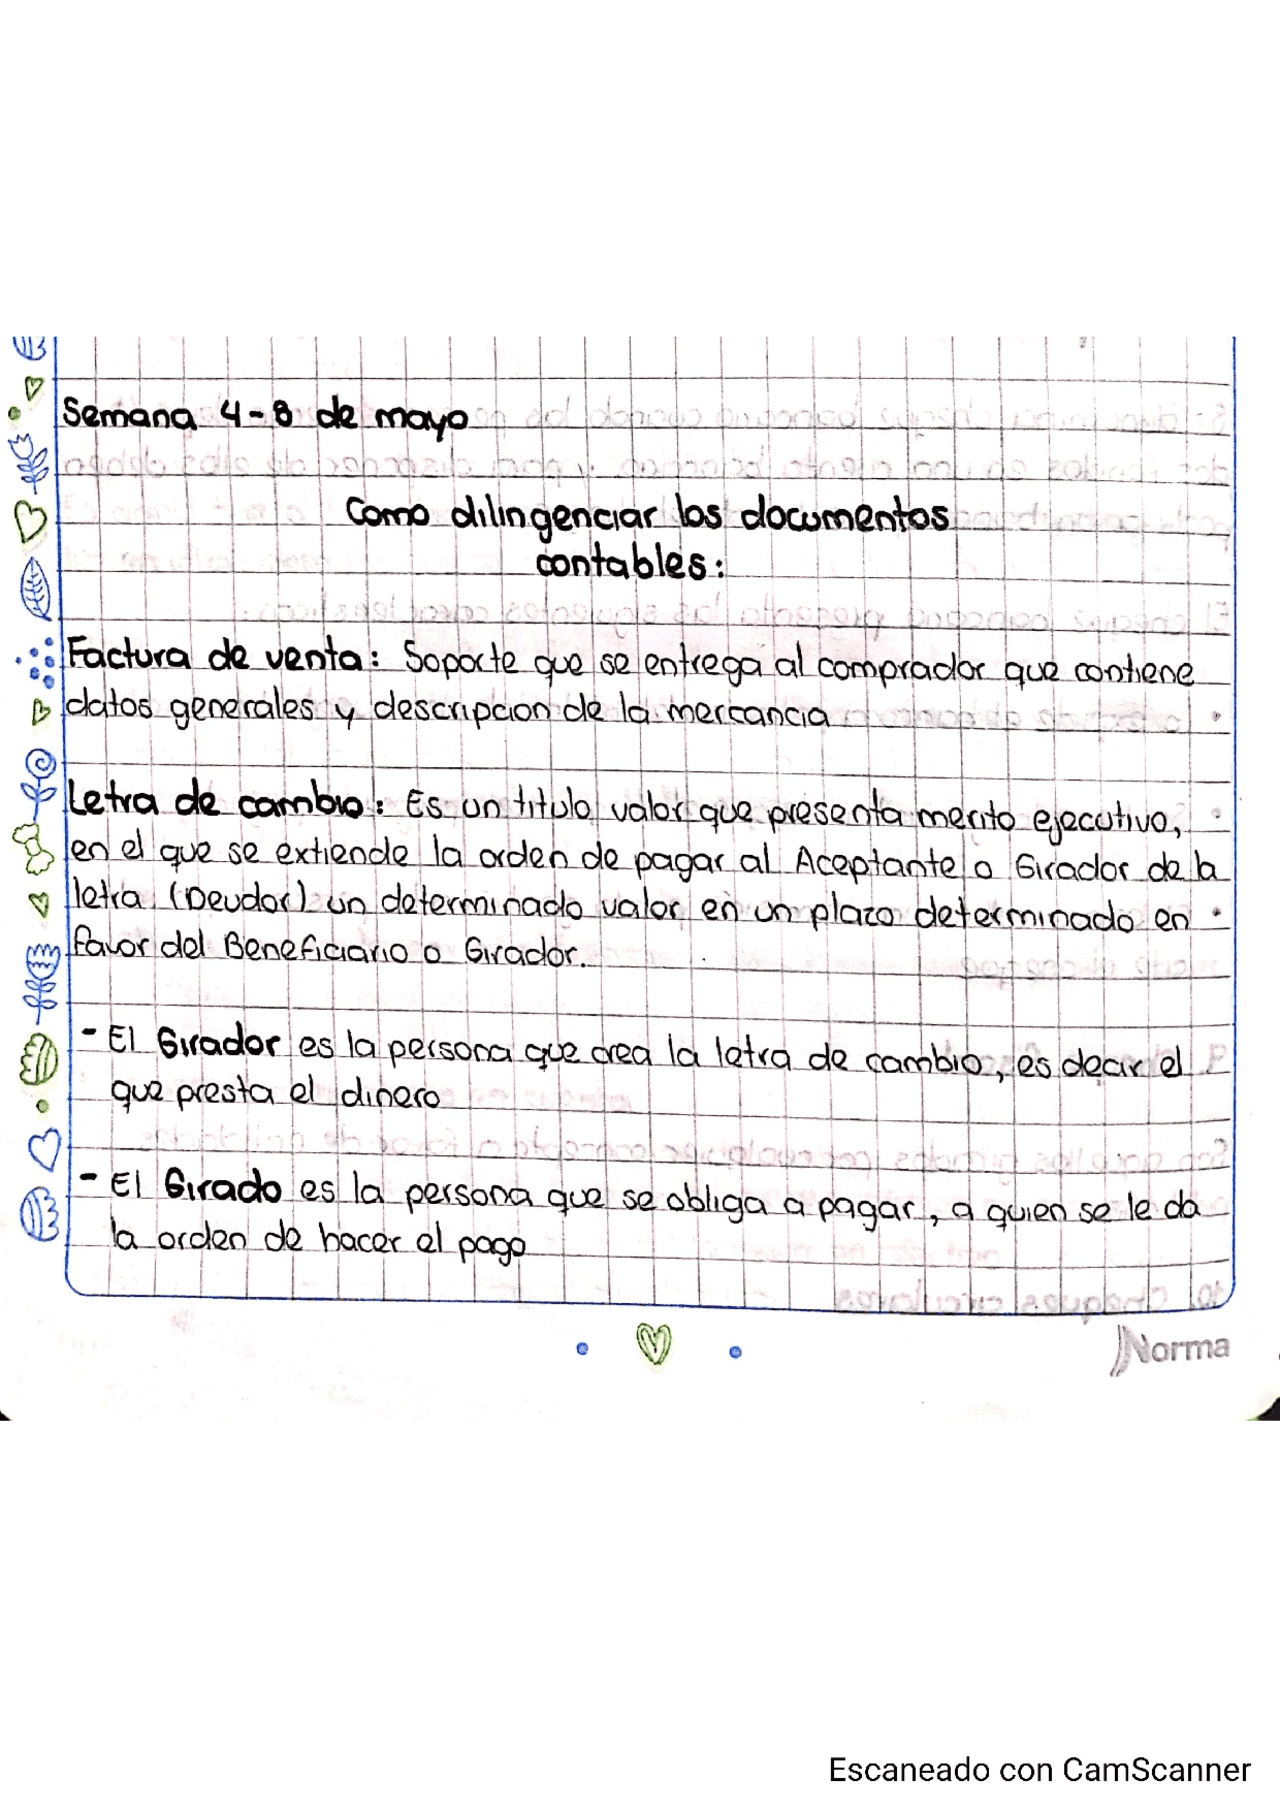 Semana 4-8 de mayo
Como dilingenciar los documentos
contables:
Factura de venta: Soporte que se entrega al comprador que contiene
datos generales y descripcion de la mercancia
Letra de cambio: Es un titulo valor que presenta merito ejecutivo,
en el que se extiende la orden de pagar al Aceptante o Girador de la
letra (Deudor) un determinado valor en un plazo determinado en
favor del Beneficiario o Girador.
- El Girador es la persona que crea la letra de cambio, es decir el
que presta el dinero
- El Girado es la persona que se obliga a pagar, a quien se le da
la orden de hacer el pago
Norma
Escaneado con CamScanner